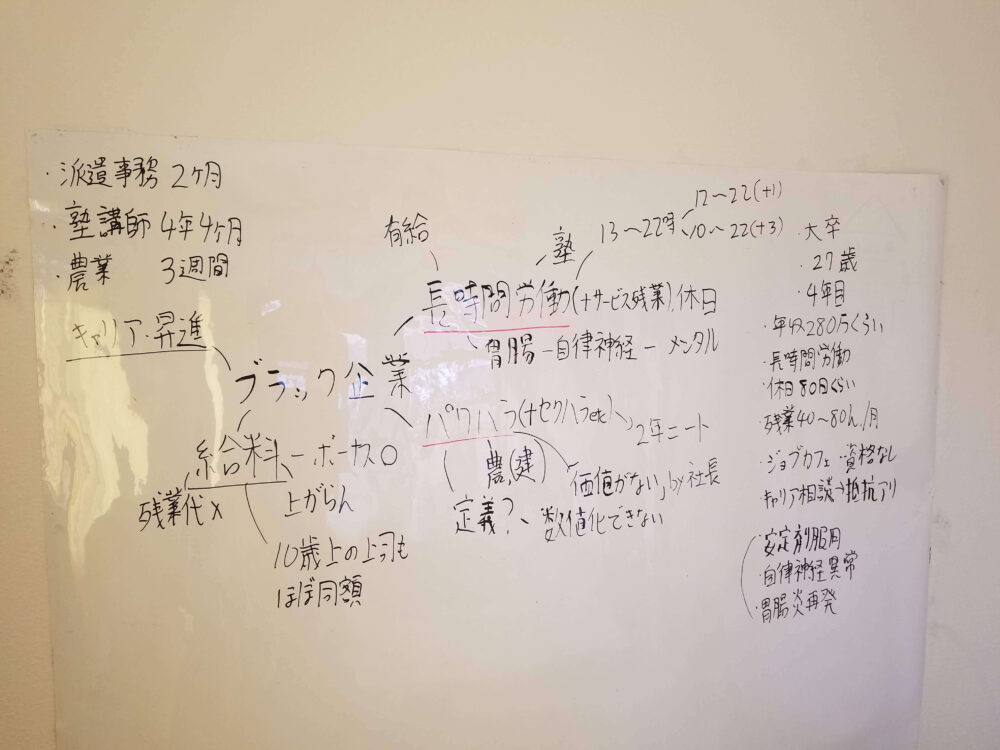 ・派遣事務 2ヶ月
・塾講師 4年4ヶ月
・農業 3週間
キャリア・昇進
ブラック企業
有給
塾
13〜22時
12〜22(+1)
10〜22(+3)
長時間労働(+サービス残業), 休日
胃腸 — 自律神経 — メンタル
パワハラ(+セクハラetc)
2年ニート
農,(建)
価値がない」by社長
定義?、数値化できない
給料 — ボーカス○
残業代×
上がらん
10歳上の上司も
ほぼ同額
・大卒
・27歳
・4年目
・年収280万くらい
・長時間労働
・休日80日くらい
残業40〜80h/月
・ジョブカフェ・資格なし
・キャリア相談→抵抗アリ
・安定剤服用
・自律神経異常
・胃腸炎再発